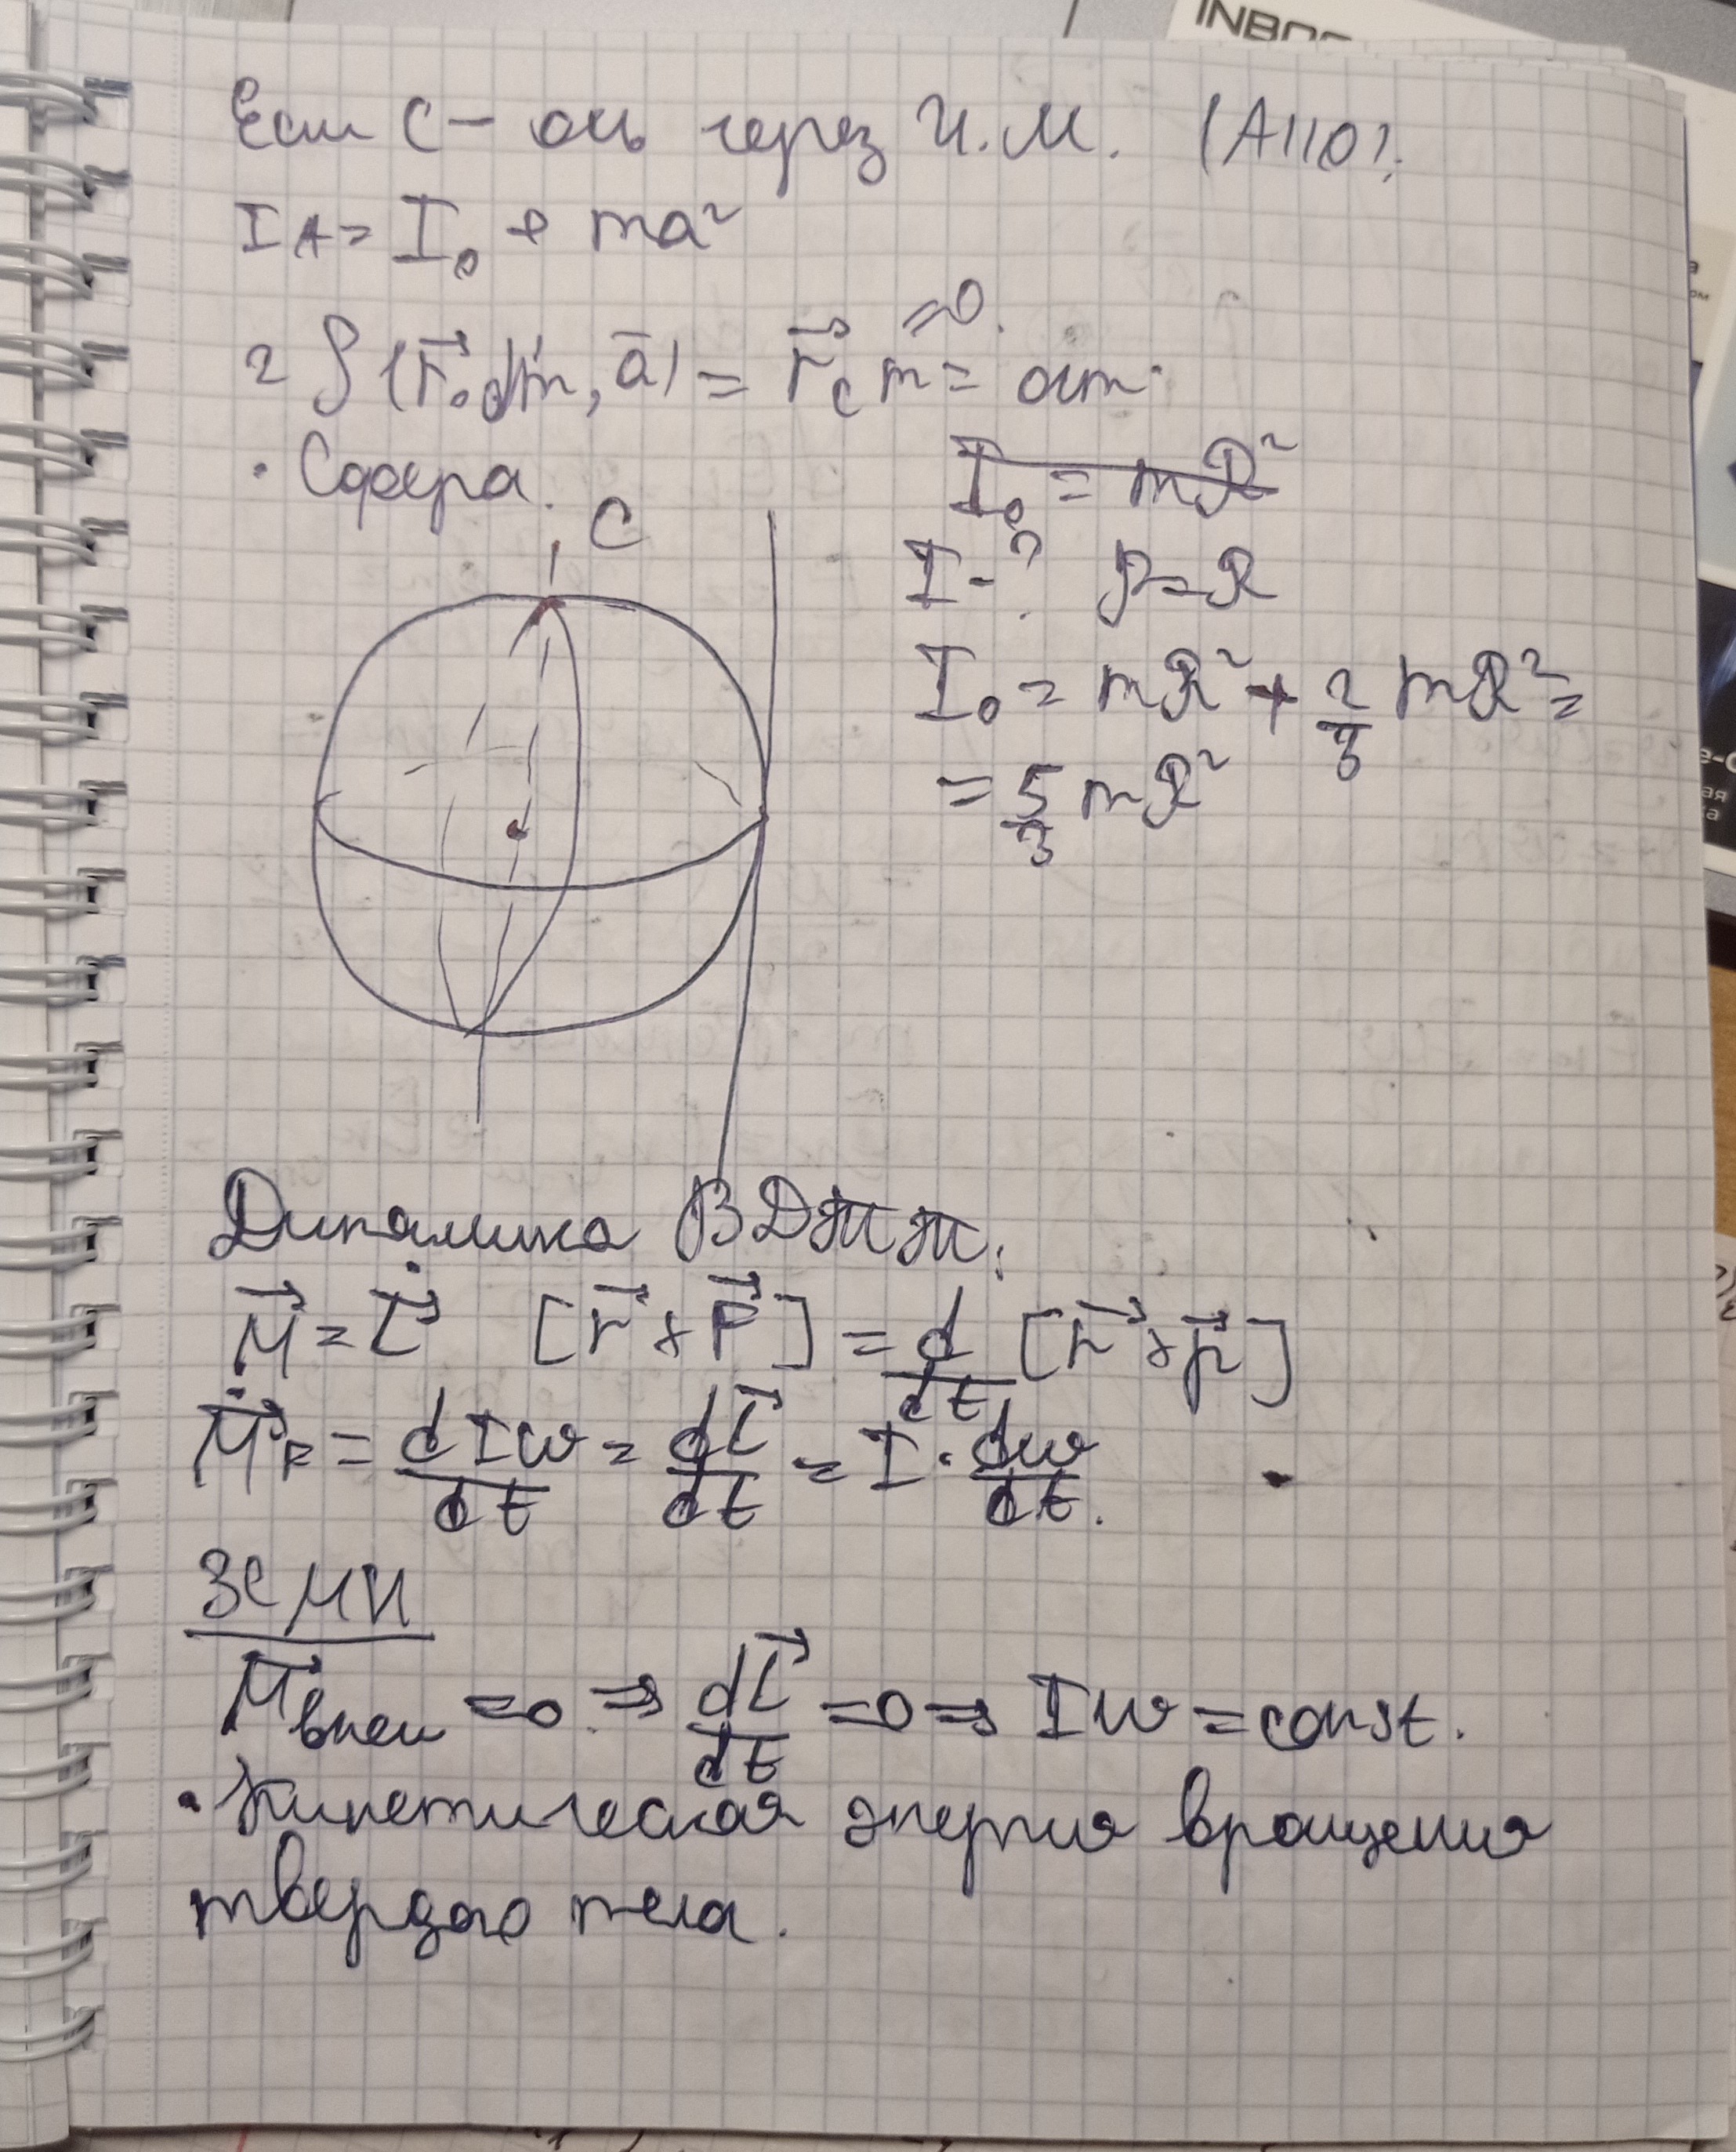 INBO
Если C – ось через Ц.М. (A||O):
I_A = I_0 + ma²
2 ∫(r⃗_0 dm, a̅) = r⃗_c m =
=0
• Сфера.
C
I_0 = mR²
I – ? ρ = R
I_0 = mR² + 2/3 mR² =
= 5/3 mR²
Динамика ВДТТ:
M⃗ = L⃗̇ [r⃗ × F⃗] = d/dt [r⃗ × p⃗]
M⃗_F = dIω/dt = dL⃗/dt = I · dω/dt.
ЗСМИ
M⃗внеш = 0 ⇒ dL⃗/dt = 0 ⇒ Iω = const.
• Кинетическая энергия вращения
твердого тела.